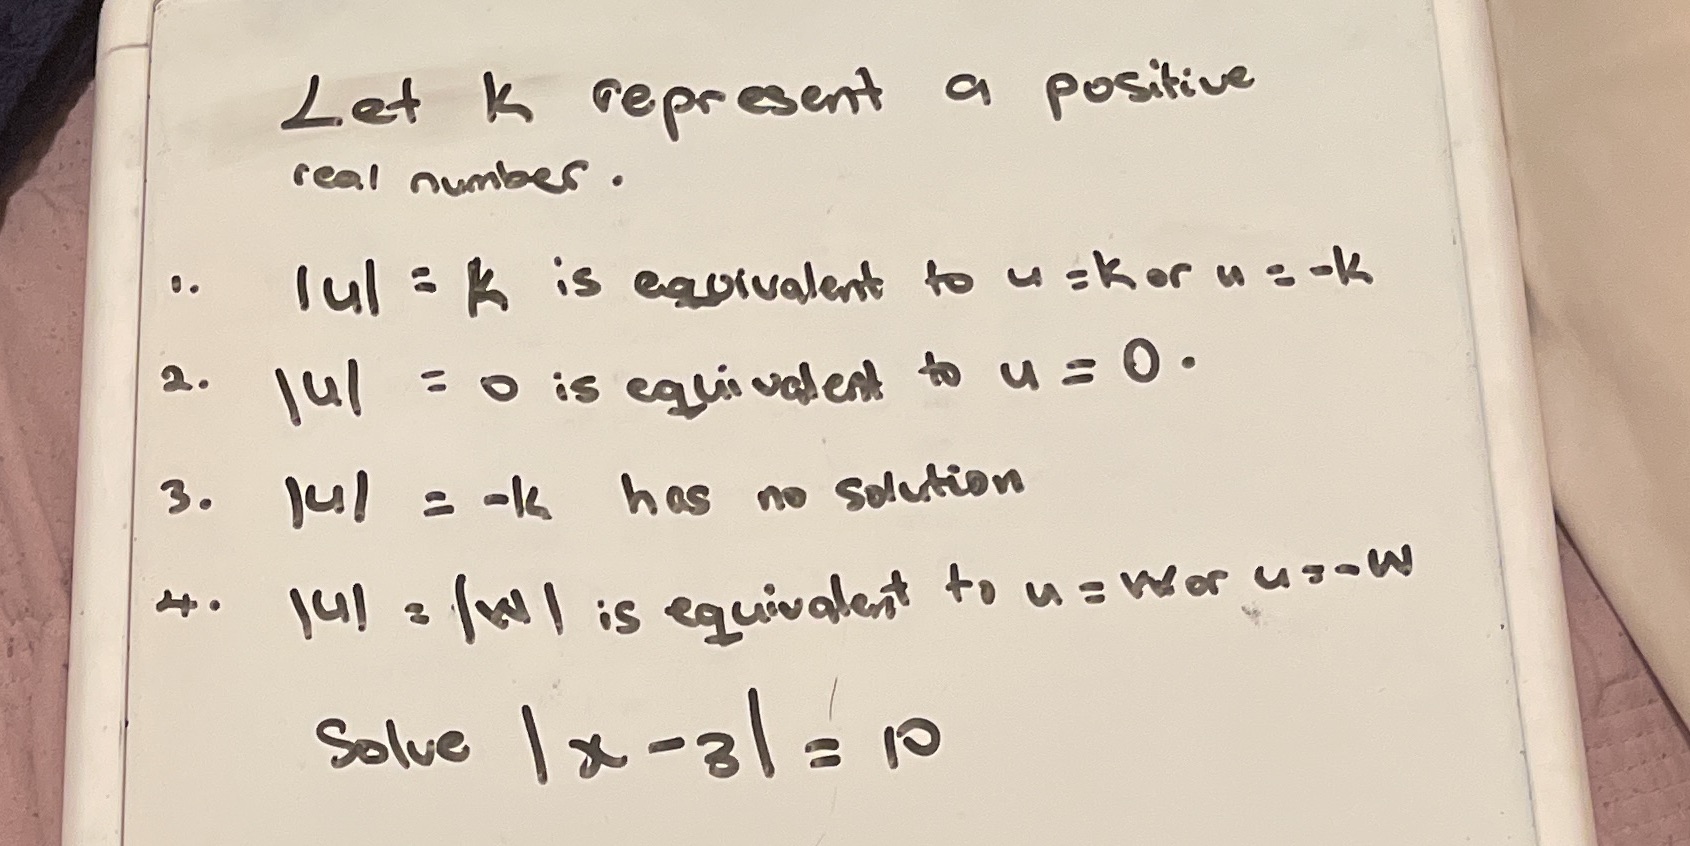 Let k represent a positive
real number.
1. |u| = k is equivalent to u = k or u = -k
2. |u| = 0 is equivalent to u = 0.
3. |u| = -k has no solution
4. |u| = |w| is equivalent to u = w or u = -w
Solve |x - 3| = 10